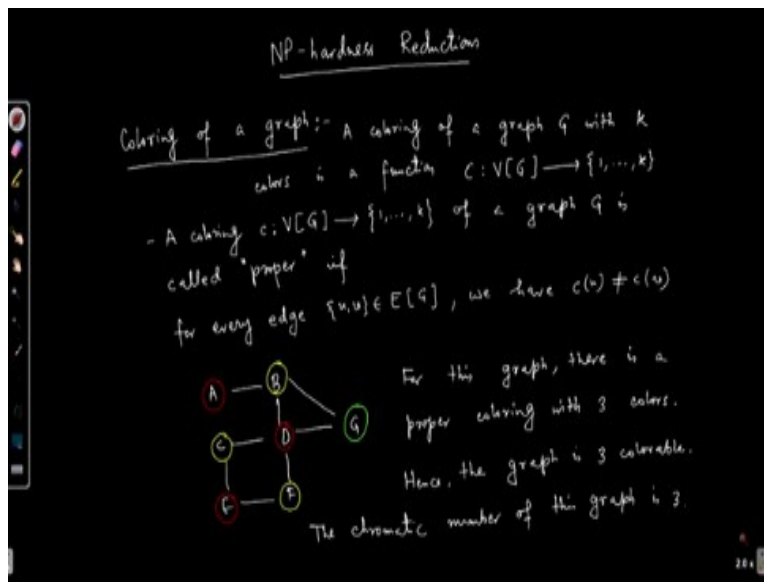 NP-hardness Reductions
Coloring of a graph:- A coloring of a graph G with k
colors is a function C: V[G] → {1,...,k}
- A coloring c: V[G] → {1,...,k} of a graph G is
called "proper" if
for every edge {u,v} ∈ E[G], we have c(u) ≠ c(v)
For this graph, there is a
proper coloring with 3 colors.
Hence, the graph is 3 colorable.
The chromatic number of this graph is 3.
A
B
G
C
D
E
F
20x